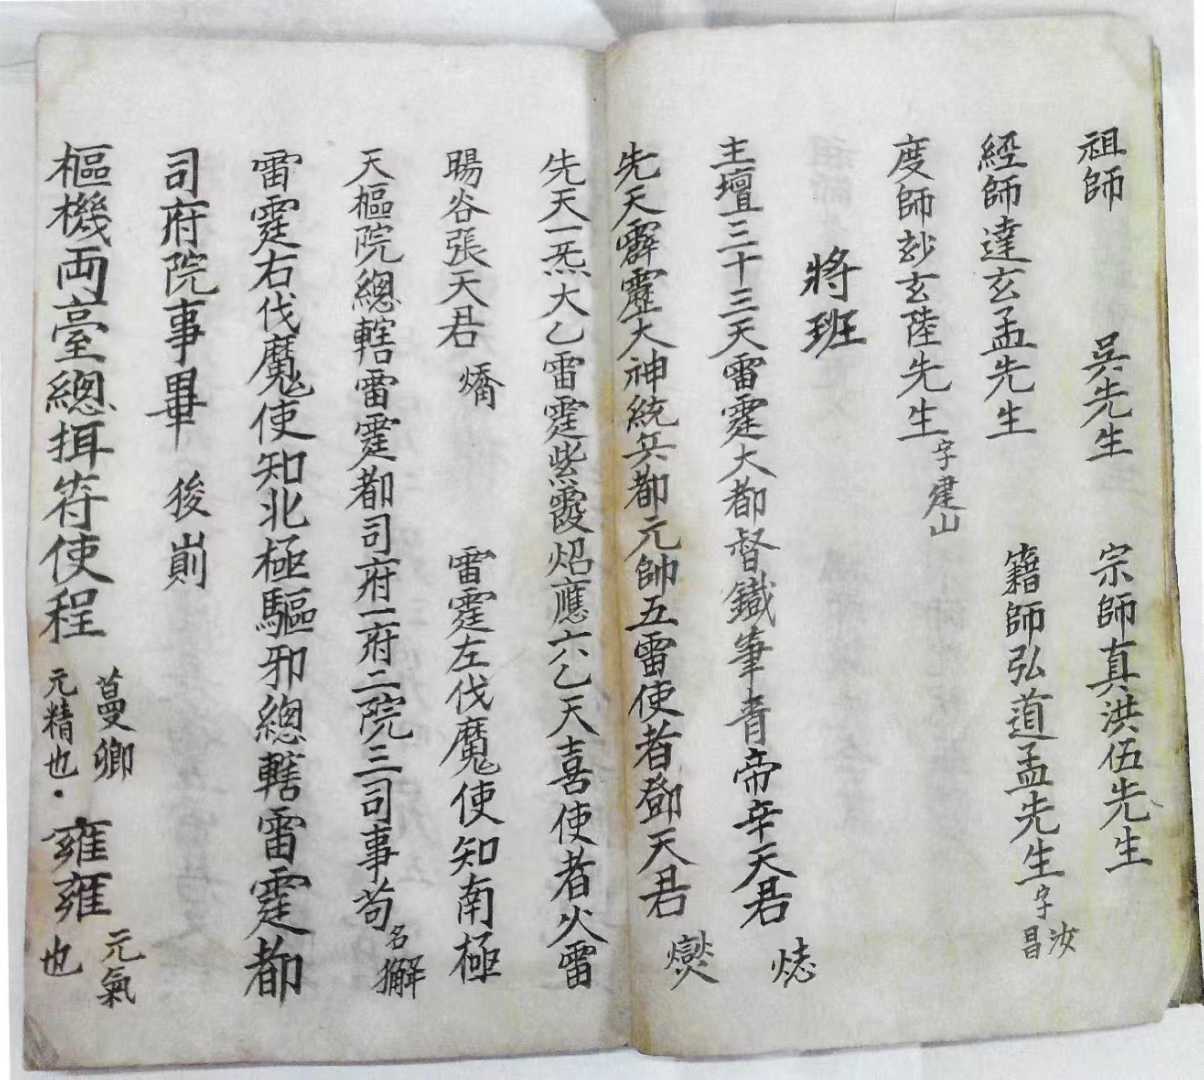 祖師 吳先生 宗師真洪伍先生
經師達玄孟先生 籍師弘道孟先生字汝昌
度師玅玄陸先生字建山
將班
主壇三十三天雷霆大都督鐵筆青帝辛天君
先天霹靂大神統兵都元帥五雷使者鄧天君 爕
先天一炁大乙雷霆紫霞炤應六乙天喜使者火雷
暘谷張天君 燆 雷霆左伐魔使知南極
天樞院總轄雷霆都司府一府二院三司事苟名獬
雷霆右伐魔使知北極驅邪總轄雷霆都
司府院事畢 後
樞機両臺總揖符使程 蔓卿 元精也·雍雍 元氣也